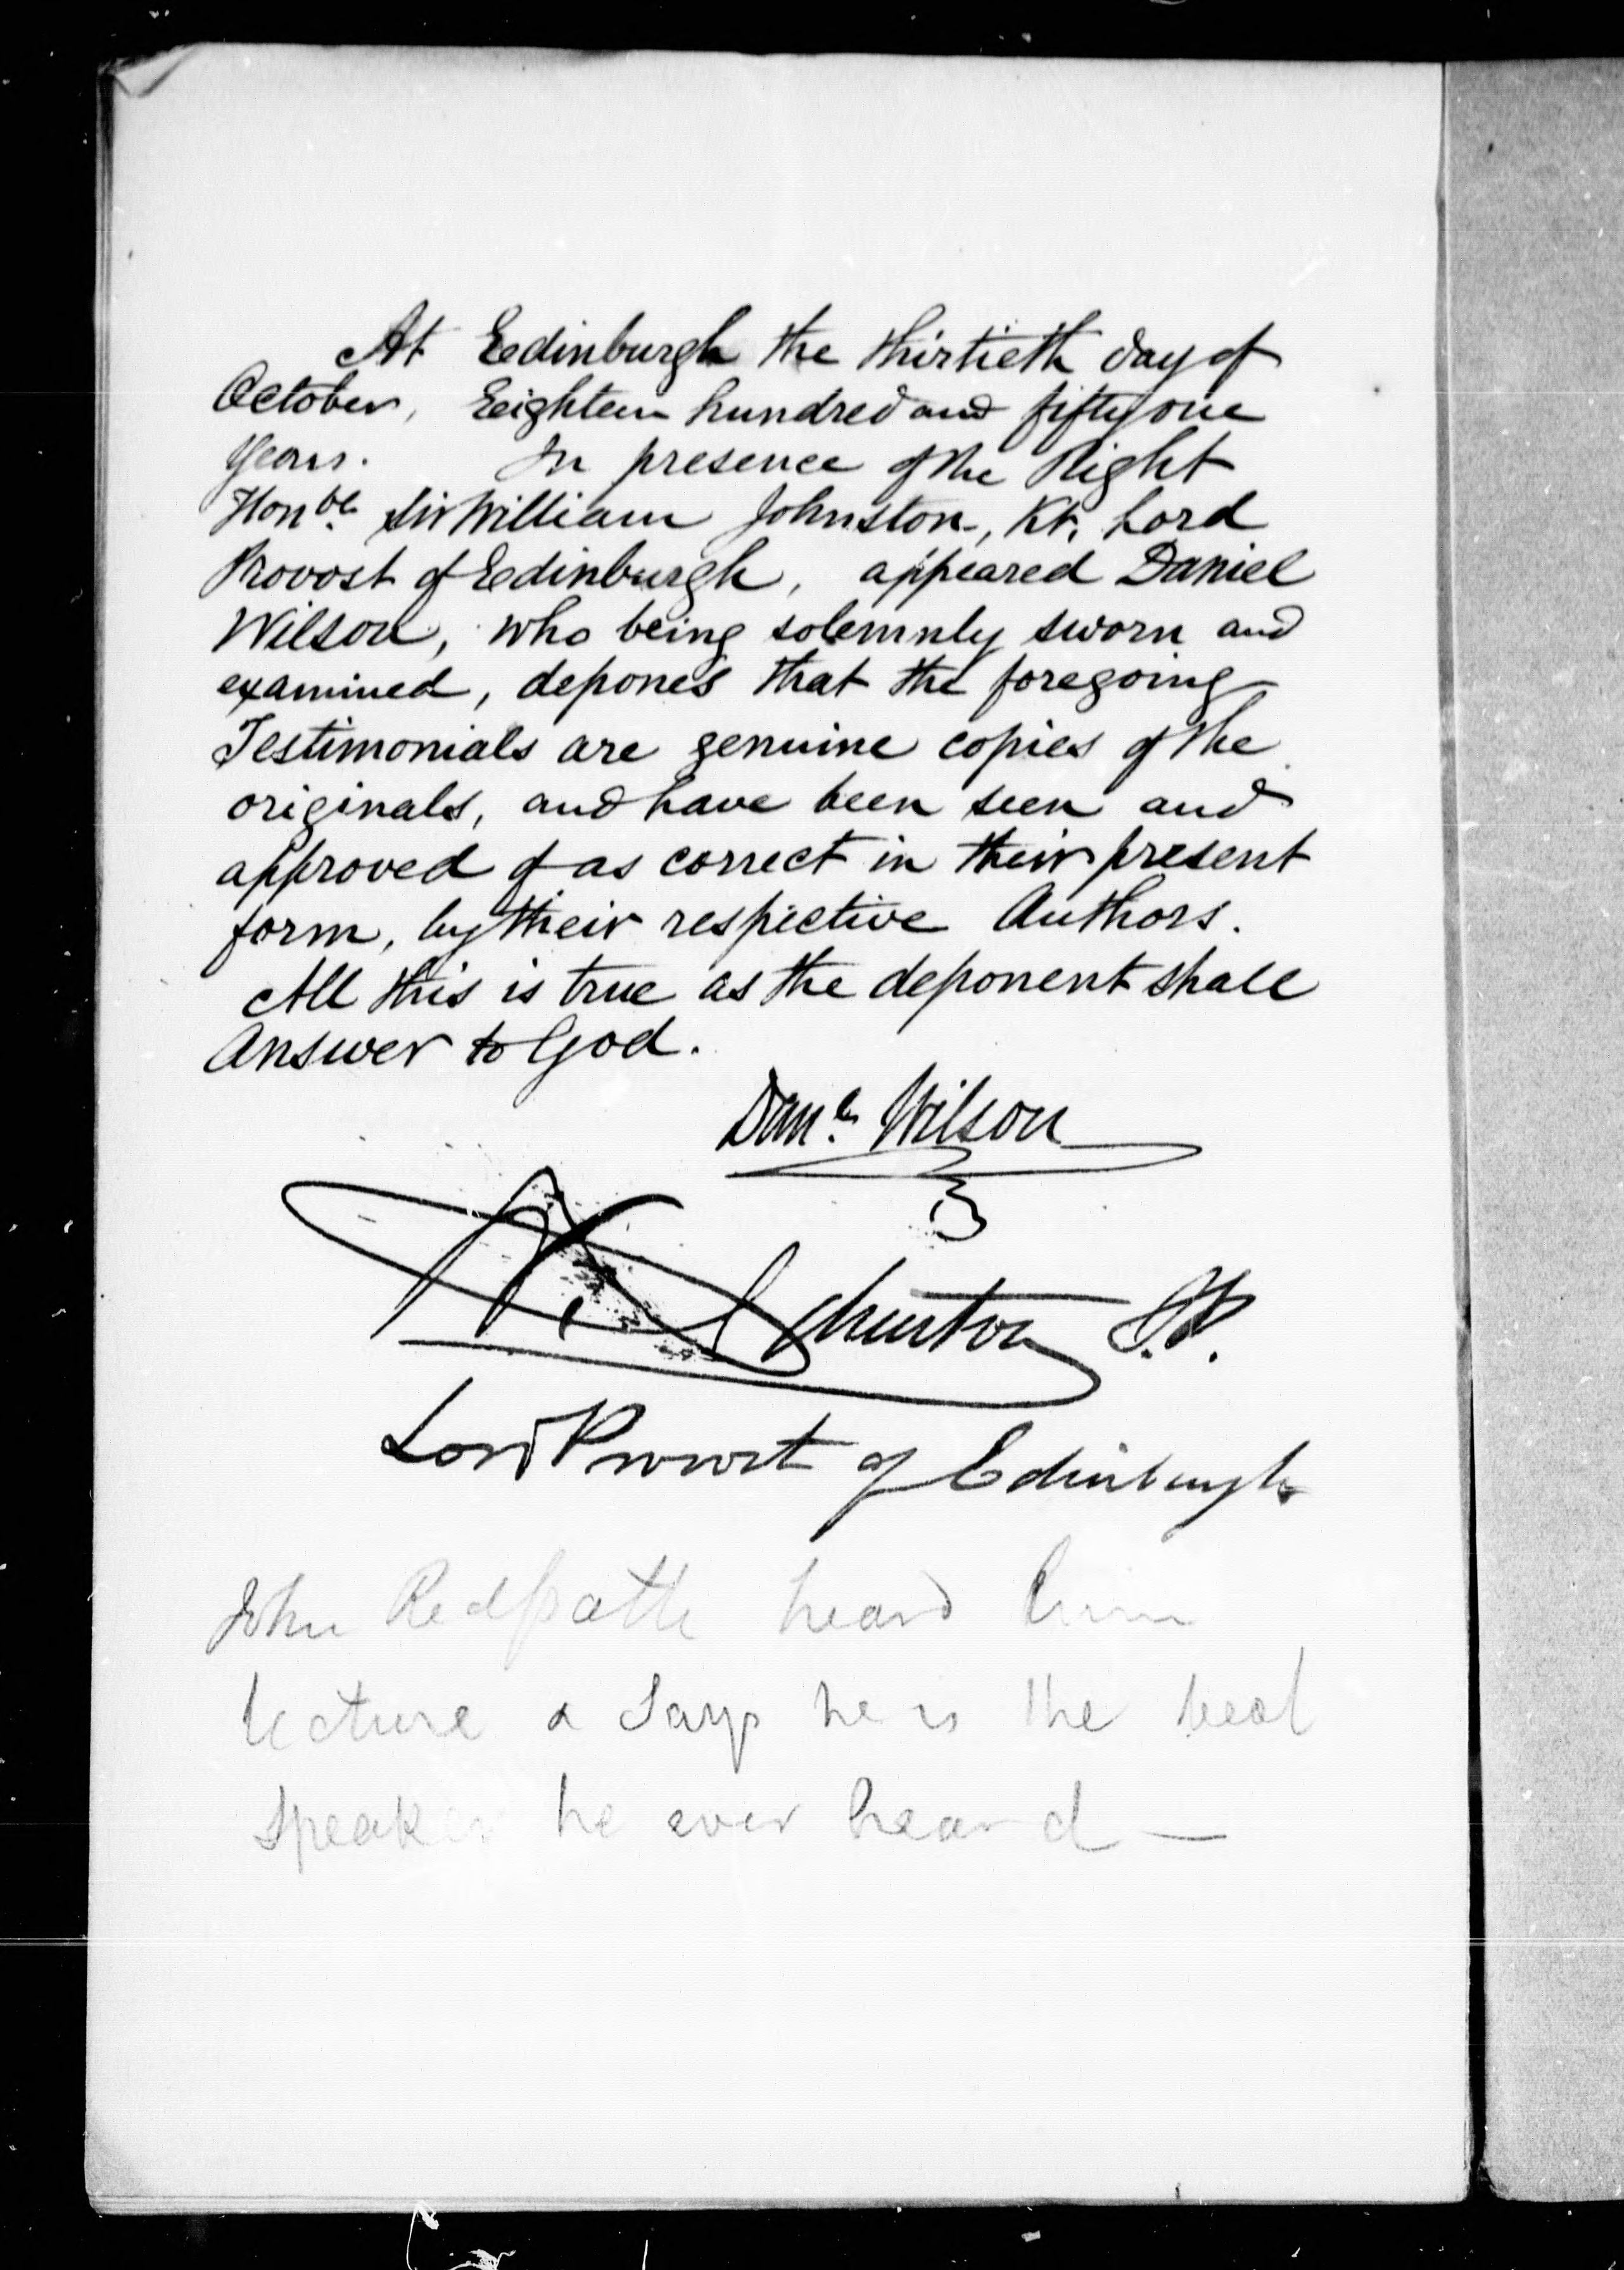 At Edinburgh the thirtieth day of
October, Eighteen hundred and fifty one
Years. In presence of the Right
Honble. Sir William Johnston, Kt. Lord
Provost of Edinburgh, appeared Daniel
Wilson, who being solemnly sworn and
examined, depones that the foregoing
Testimonials are genuine copies of the
originals, and have been seen and
approved of as correct in their present
form, by their respective Authors.
All this is true as the deponent shall
Answer to God.
Danl. Wilson
Johnston
Lord Provost of Edinburgh
John Redpath heard him
lecture & says he is the best
speaker he ever heard —